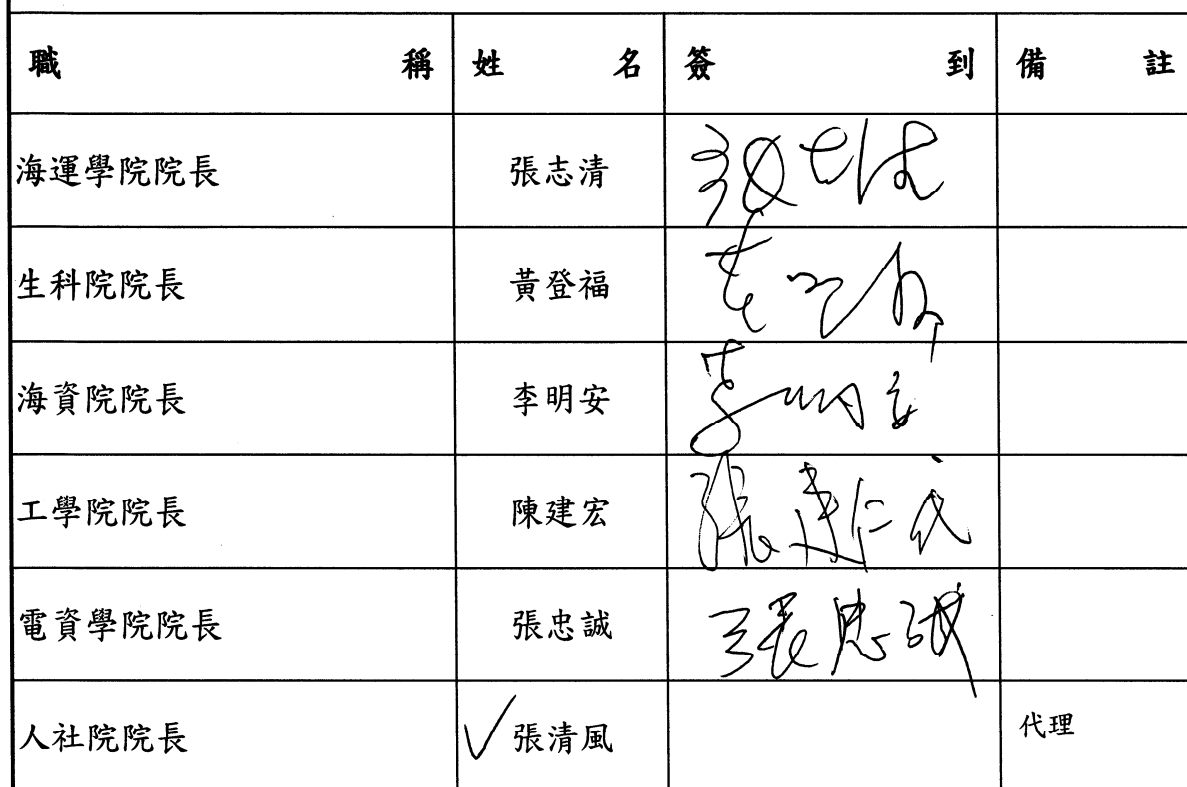 職稱 姓名 簽到 備註
海運學院院長 張志清 張志清
生科院院長 黃登福
海資院院長 李明安 李明安
工學院院長 陳建宏 張建仁代
電資學院院長 張忠誠 張忠誠
人社院院長 ✓張清風 代理